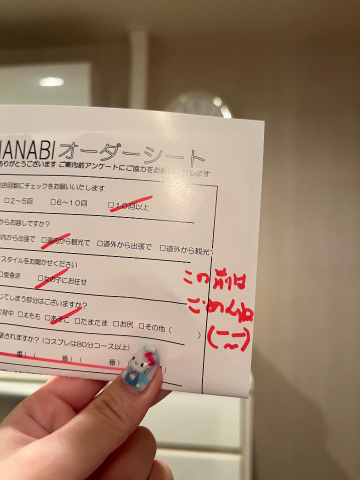 HANABIオーダーシート
ありがとうございます ご案内前アンケートにご協力をお願いいたします
店回数にチェックをお願いいたします
□2~5回 □6~10回 □10回以上
からお越しですか?
内から出張で □道内から観光で □道外から出張で □道外から観光で
スタイルをお聞かせください
□受身派 □女の子にお任せ
じてしまう部分はございますか?
背中 □太もも □あそこ □たまたま □お尻 □その他(
)
望されますか?(コスプレは80分コース以上)
番)( 番)( 番)(
この前は
ごめんね